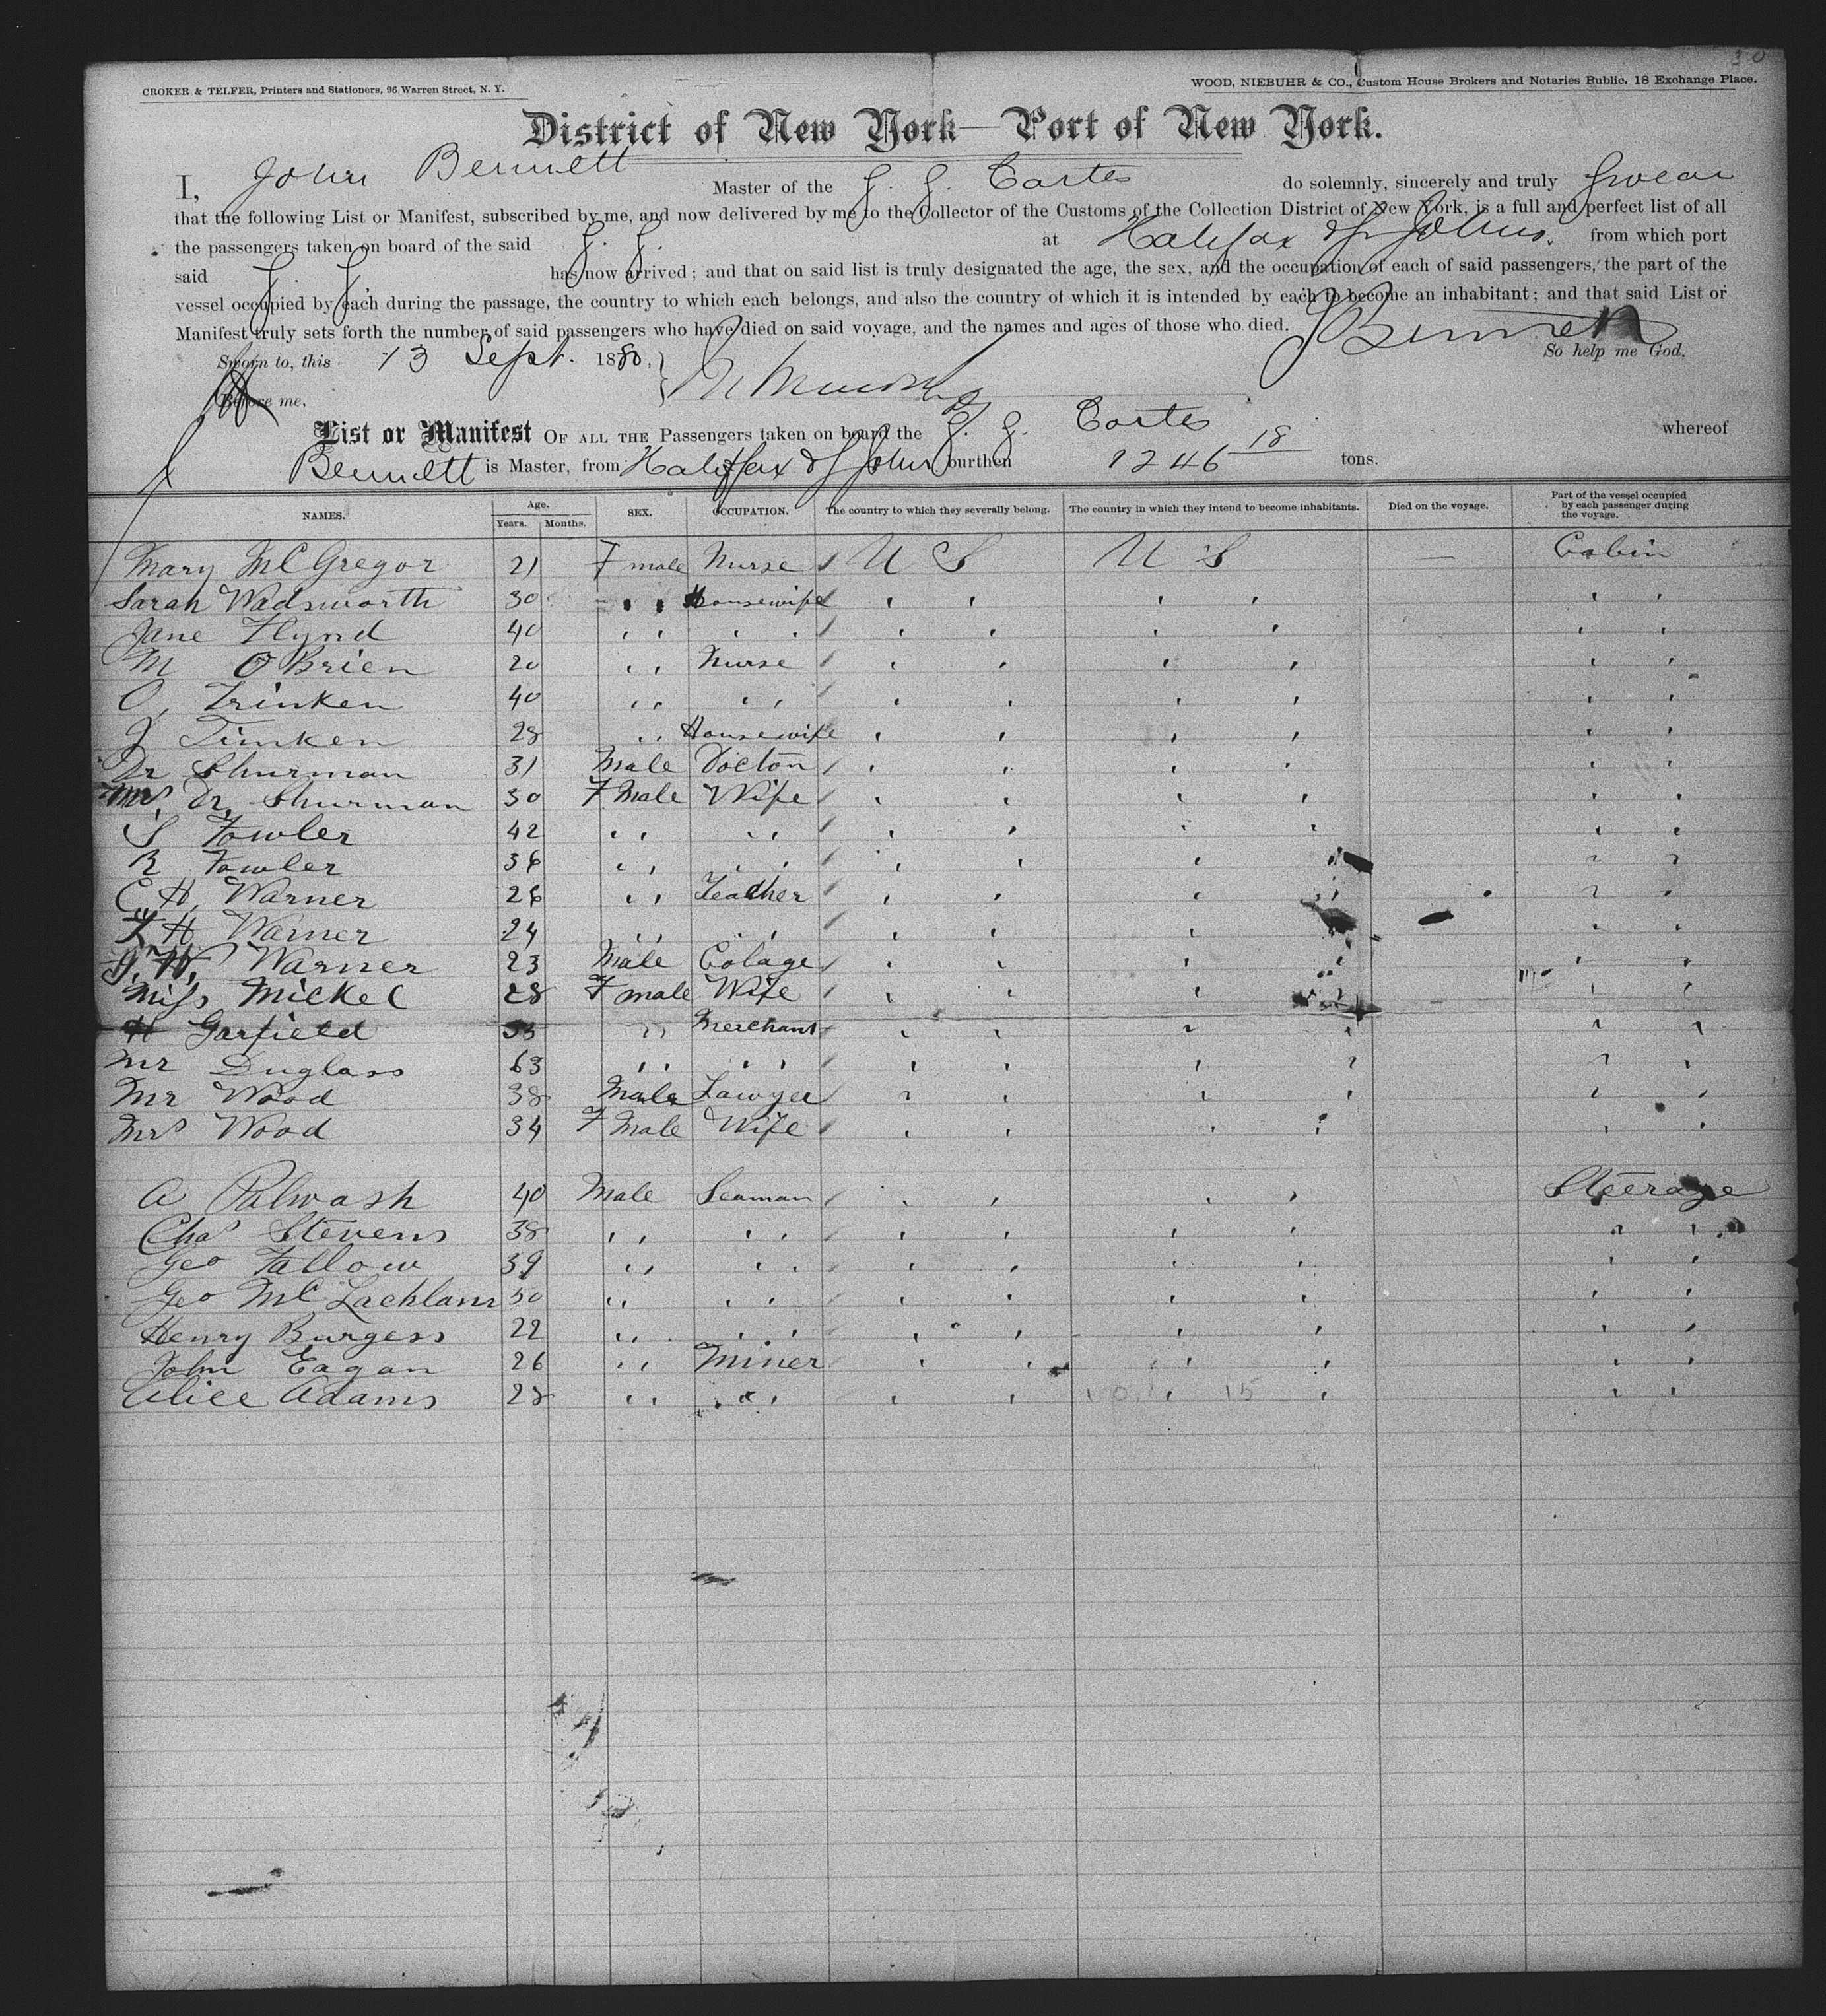 30
CROKER & TELFER, Printers and Stationers, 96 Warren Street, N. Y. WOOD, NIEBUHR & CO., Custom House Brokers and Notaries Public, 18 Exchange Place.
District of New York—Port of New York.
I, John Bennett Master of the S. S. Cortes do solemnly, sincerely and truly swear
that the following List or Manifest, subscribed by me, and now delivered by me to the Collector of the Customs of the Collection District of New York, is a full and perfect list of all
the passengers taken on board of the said S. S. at Halifax & St Johns. from which port
said S. S. has now arrived; and that on said list is truly designated the age, the sex, and the occupation of each of said passengers, the part of the
vessel occupied by each during the passage, the country to which each belongs, and also the country of which it is intended by each to become an inhabitant; and that said List or
Manifest truly sets forth the number of said passengers who have died on said voyage, and the names and ages of those who died. J Bennett
Sworn to, this 13 Sept. 1880, So help me God.
Before me,
List or Manifest OF ALL THE Passengers taken on board the S. S. Cortes whereof
Bennett is Master, from Halifax & St John burthen 1246 18 tons.
NAMES. Age. Years. Months. SEX. OCCUPATION. The country to which they severally belong. The country in which they intend to become inhabitants. Died on the voyage. Part of the vessel occupied by each passenger during the voyage.
Mary McGregor 21 F male Nurse U S U S — Cabin
Sarah Wadsworth 30 " Housewife " " "
Jane Flynd 40 " " " " "
M O'Brien 20 " Nurse " " "
O, Trinken 40 " " " " "
J Timken 28 " Housewife " " "
Dr Shurman 31 Male Docton " " "
Mrs Dr, Shurman 30 F Male Wife " " "
S Fowler 42 " " " " "
R Fowler 36 " " " " "
C, H, Warner 26 " Teacher " " "
H Warner 24 " " " " "
J. W. Warner 23 Male Colage " " "
Miss Mickel 28 F male Wife " " "
H Garfield " Merchant " " "
Mr Duglass 63 " " " " "
Mr Wood 38 Male Lawyer " " "
Mrs Wood 34 F Male Wife " " "
A Palwash 40 Male Seaman " " Steerage
Chas Stevens 38 " " " " "
Geo Fallow 39 " " " " "
Geo McLachlann 50 " " " " "
Henry Burgess 22 " " " " "
John Eagan 26 " Miner " " "
Alice Adams 28 " " " " "